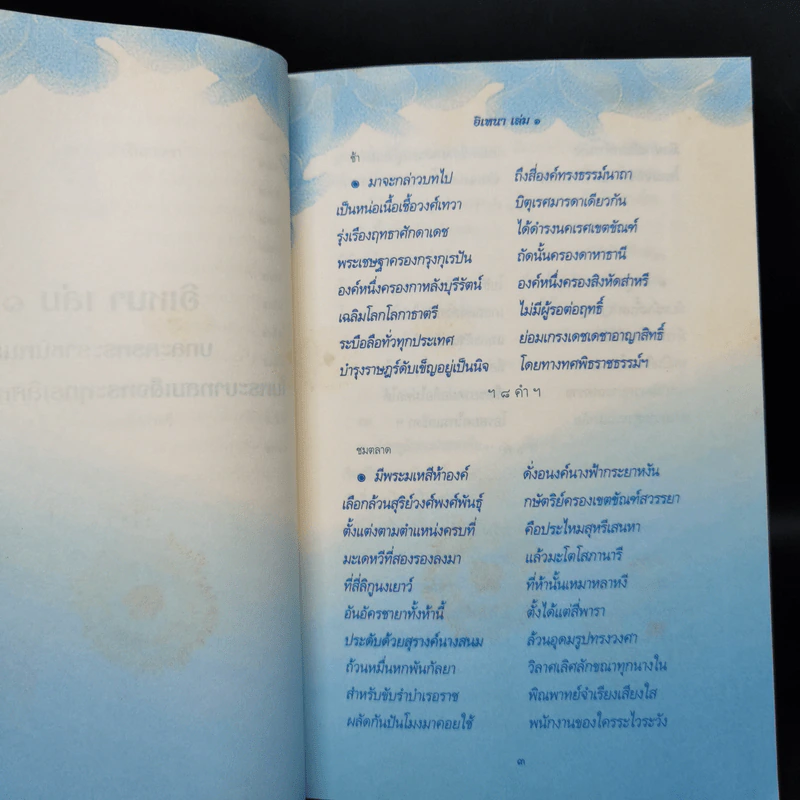 อิเหนา เล่ม ๑
ช้า
๏ มาจะกล่าวบทไป ถึงสี่องค์ทรงธรรม์นาถา
เป็นหน่อเนื้อเชื้อวงศ์เทวา บิตุเรศมารดาเดียวกัน
รุ่งเรืองฤทธาศักดาเดช ได้ดำรงนคเรศเขตขัณฑ์
พระเชษฐาครองกรุงกุเรปัน ถัดนั้นครองดาหาธานี
องค์หนึ่งครองกาหลังบุรีรัตน์ องค์หนึ่งครองสิงหัดส่าหรี
เฉลิมโลกโลกาธาตรี ไม่มีผู้รอต่อฤทธิ์
ระบือลือทั่วทุกประเทศ ย่อมเกรงเดชเดชาอาญาสิทธิ์
บำรุงราษฎร์ดับเข็ญอยู่เป็นนิจ โดยทางทศพิธราชธรรม์ฯ
ฯ ๘ คำ ฯ
ชมตลาด
๏ มีพระมเหสีห้าองค์ ดั่งอนงค์นางฟ้ากระยาหงัน
เลือกล้วนสุริย์วงศ์พงศ์พันธุ์ กษัตริย์ครองเขตขัณฑ์สวรรยา
ตั้งแต่งตามตำแหน่งครบที่ คือประไหมสุหรีเสนหา
มะเดหวีที่สองรองลงมา แล้วมะโตโสภานารี
ที่สี่ลิกูนงเยาว์ ที่ห้านั้นเหมาหลาหงี
อันอัครชายาทั้งห้านี้ ตั้งได้แต่สี่พารา
ประดับด้วยสุรางค์นางสนม ล้วนอุดมรูปทรงวงศา
ถ้วนหมื่นหกพันกัลยา วิลาศเลิศลักขณาทุกนางใน
สำหรับขับรำบำเรอราช พิณพาทย์จำเรียงเสียงใส
ผลัดกันปันโมงมาคอยใช้ พนักงานของใครระไวระวัง
๓